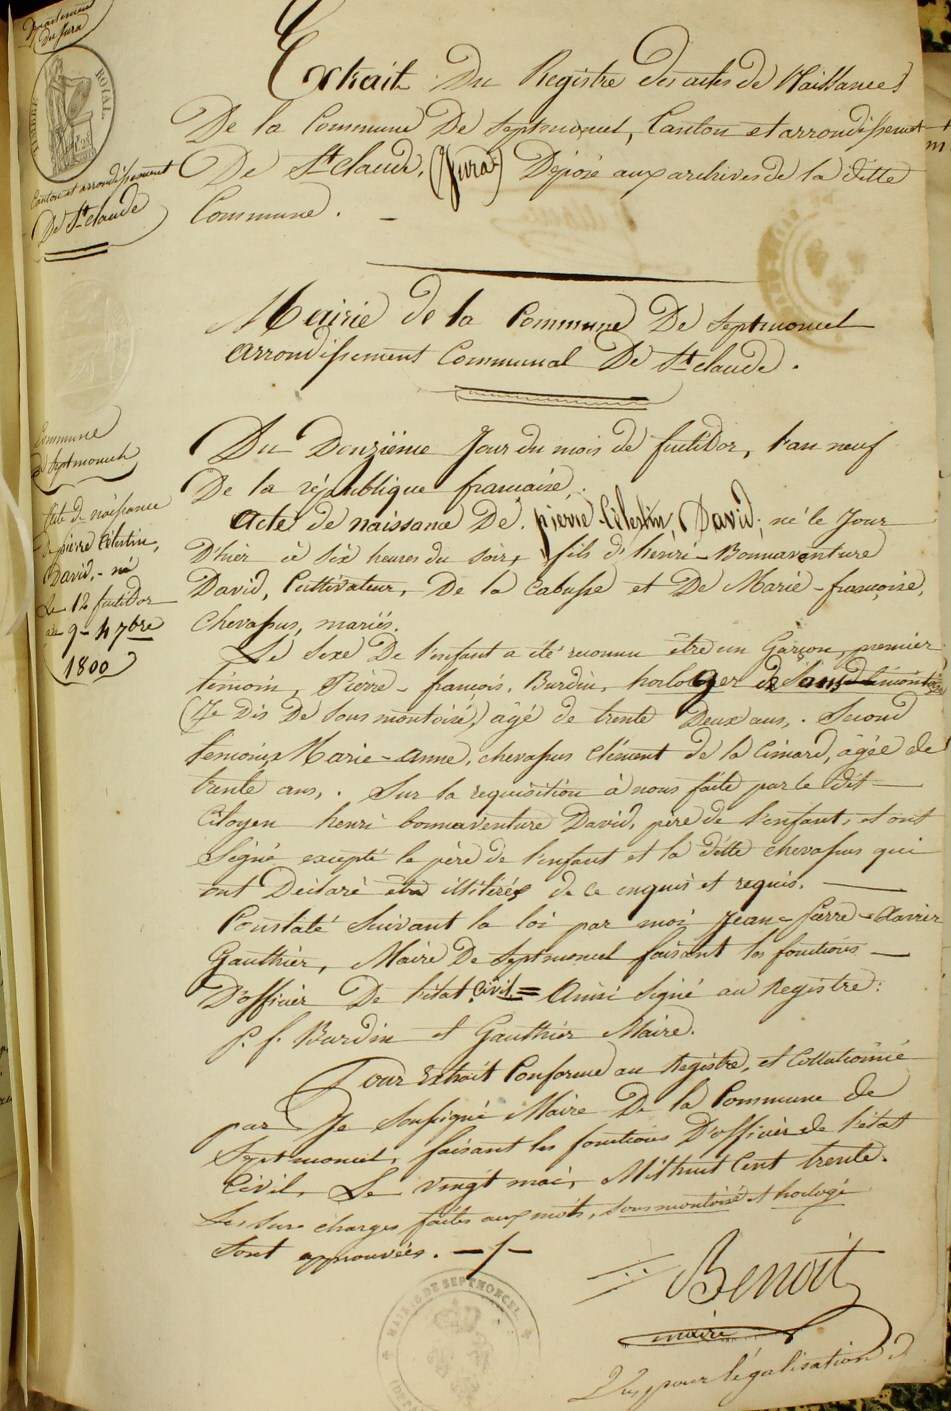 Departement
du Jura
TIMBRE ROYAL
Canton et arrondissement
De St Claude
Extrait Du Registre des actes de Naissances
De la Commune De Septmoncel, Canton et arrondissement
De St Claude, (Jura) Déposé aux archives de la ditte
Commune. -
Mairie de la Commune De Septmoncel
arrondissement Communal De St Claude.
Commune
de Septmoncel
Acte de naissance
de pierre Célestin,
David, - né
Le 12 fructidor
an 9 - 4 7bre
1800
Du Douzième Jour du mois de fructidor, l'an neuf
De la république francaise.
Acte de naissance De. pierre Célestin, David, né le Jour
D'hier à six heures du soir, fils d'henri-Bonnaventure
David, Cultivateur, De la Cabusse et De Marie-francoise,
Chevassus, mariés.
Le Sexe De l'enfant a été reconnu être un Garçon, premier
temoin, Pierre-francois, Burdin, horloger de
(Je Dis De Sous montoisé,) âgé de trente Deux ans,. Second
témoin Marie-anne, chevassus Clément de la Cimard, âgée de
trente ans,. Sur la requisition à nous faite par le dit
Citoyen henri bonnaventure David, père de l'enfant, et ont
Signé excepté le père de l'enfant et la ditte chevassus qui
ont Déclaré être illitérés de ce enquis et requis.
Constaté Suivant la loi par moi Jean-Pierre-Xavier
Gauthier, Maire De Septmoncel faisant les fonctions
D'officier De l'état Civil = Ainsi Signé au Registre:
P. f. Burdin et Gauthier Maire.
Pour Extrait Conforme au Registre, et Collationné
par Je Soussigné Maire De la Commune de
Septmoncel, faisant les fonctions D'officier de l'état
Civil, Le vingt mai, Mil huit Cent trente.
Les Sur charges faites aux mots, Sous montoisé et horlogé
Sont approuvées.
Benoit
maire
MAIRIE DE SEPTMONCEL
Vu, pour légalisation